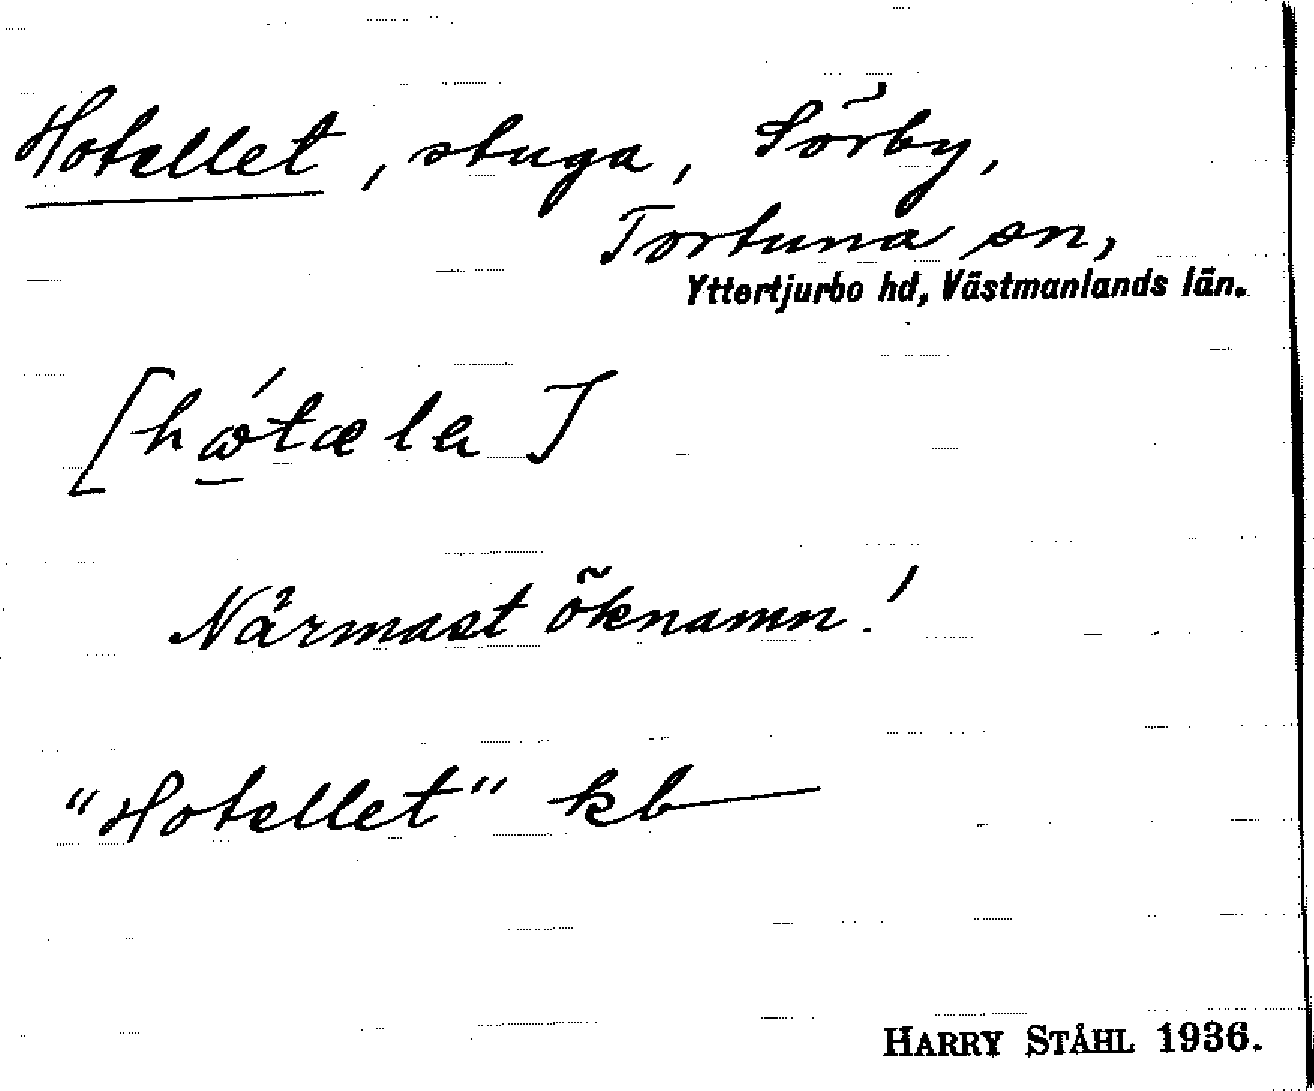 Hotellet, stuga, Sörby,
Tortuna sn,
Yttertjurbo hd, Västmanlands län.
[hǿtæla]
Närmast öknamn!
"Hotellet" kb
HARRY STÅHL 1936.